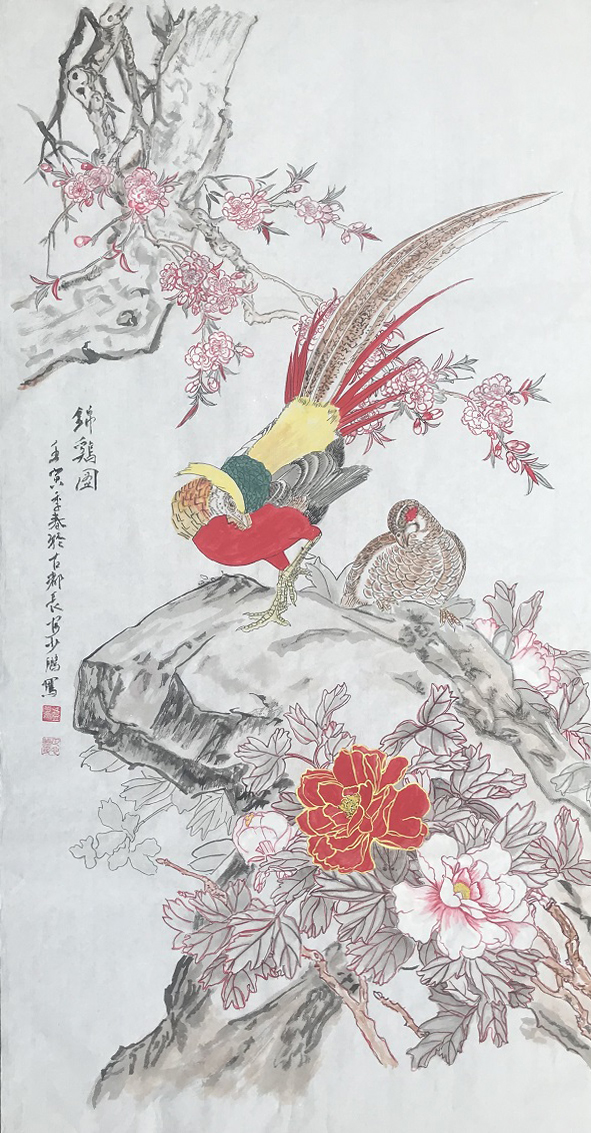 錦鷄图
壬寅季春於古都長安少鵬寫